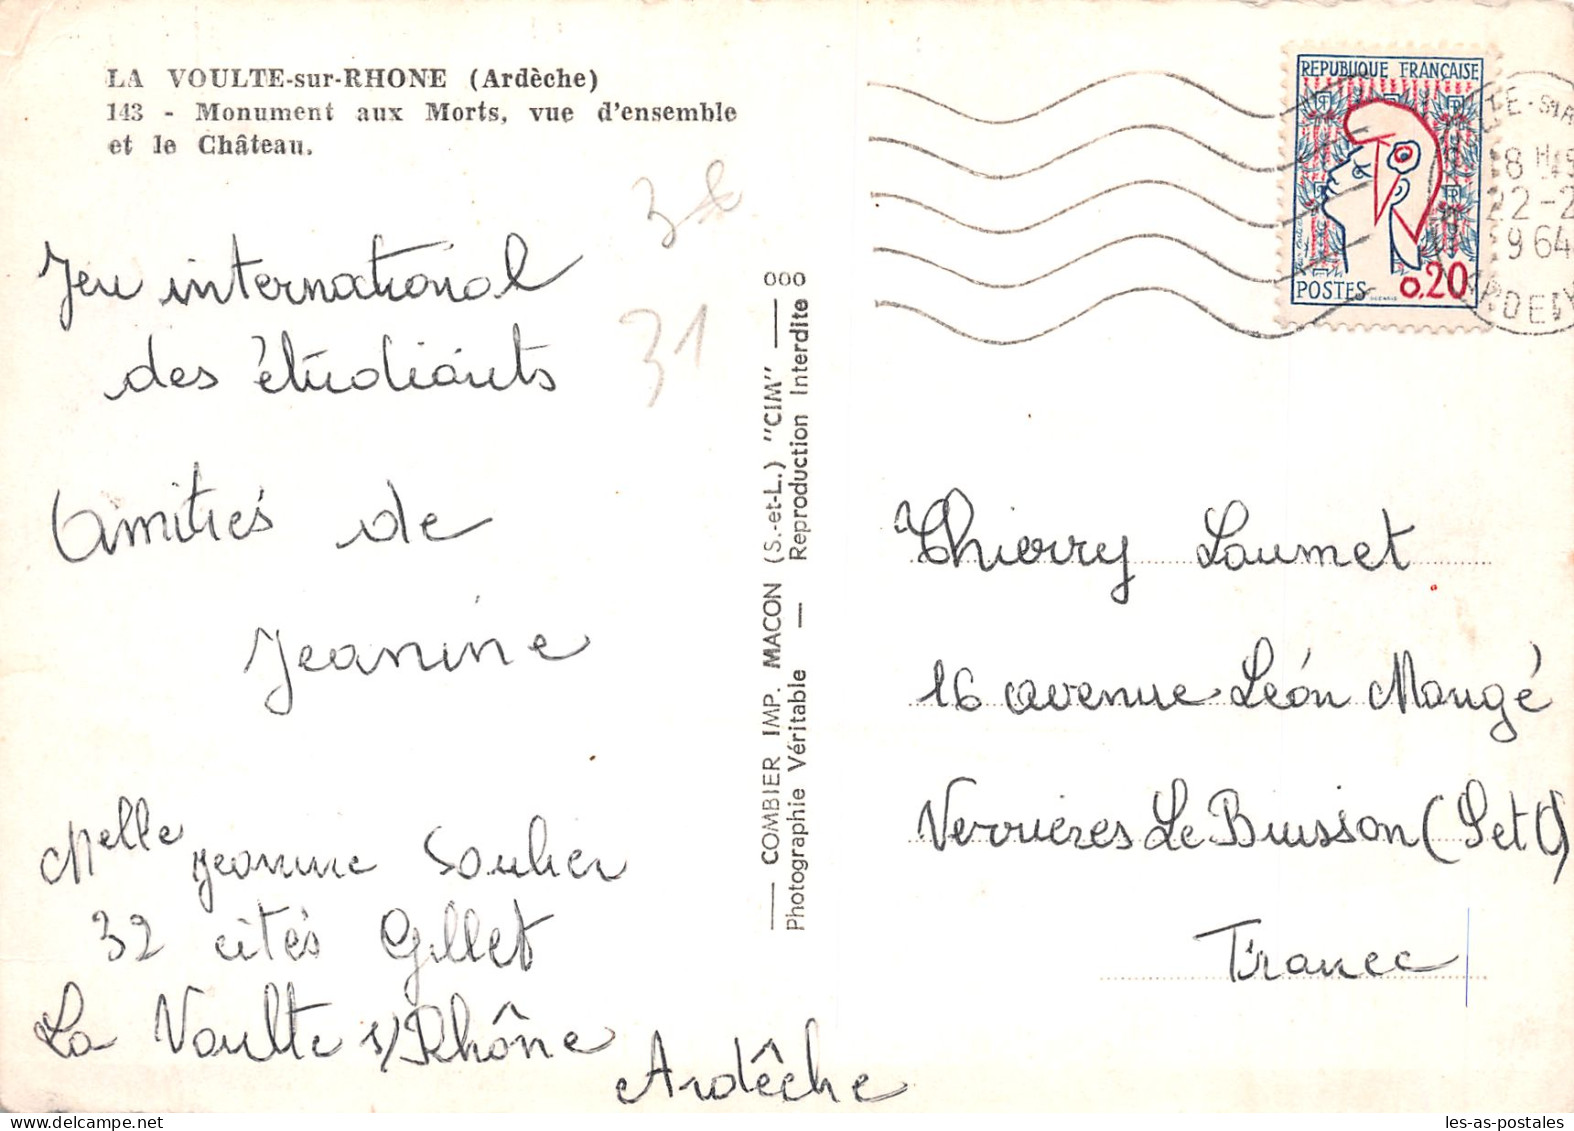 LA VOULTE-sur-RHONE (Ardèche)
143 - Monument aux Morts, vue d'ensemble
et le Château.
32
31
Jeu international
des étudiants
Amitiés de
Jeanine
Melle Jeanine Soulier
32 cités Gillet
La Voulte s/Rhône
Ardèche
COMBIER IMP. MACON (S.-et-L.) "CIM"
Photographie Véritable — Reproduction Interdite
REPUBLIQUE FRANÇAISE
POSTES 0,20
18 H
22-2
1964
ARDECHE
Thierry Laumet
16 avenue Léon Maugé
Verrières Le Buisson (S et O)
France
les-as-postales